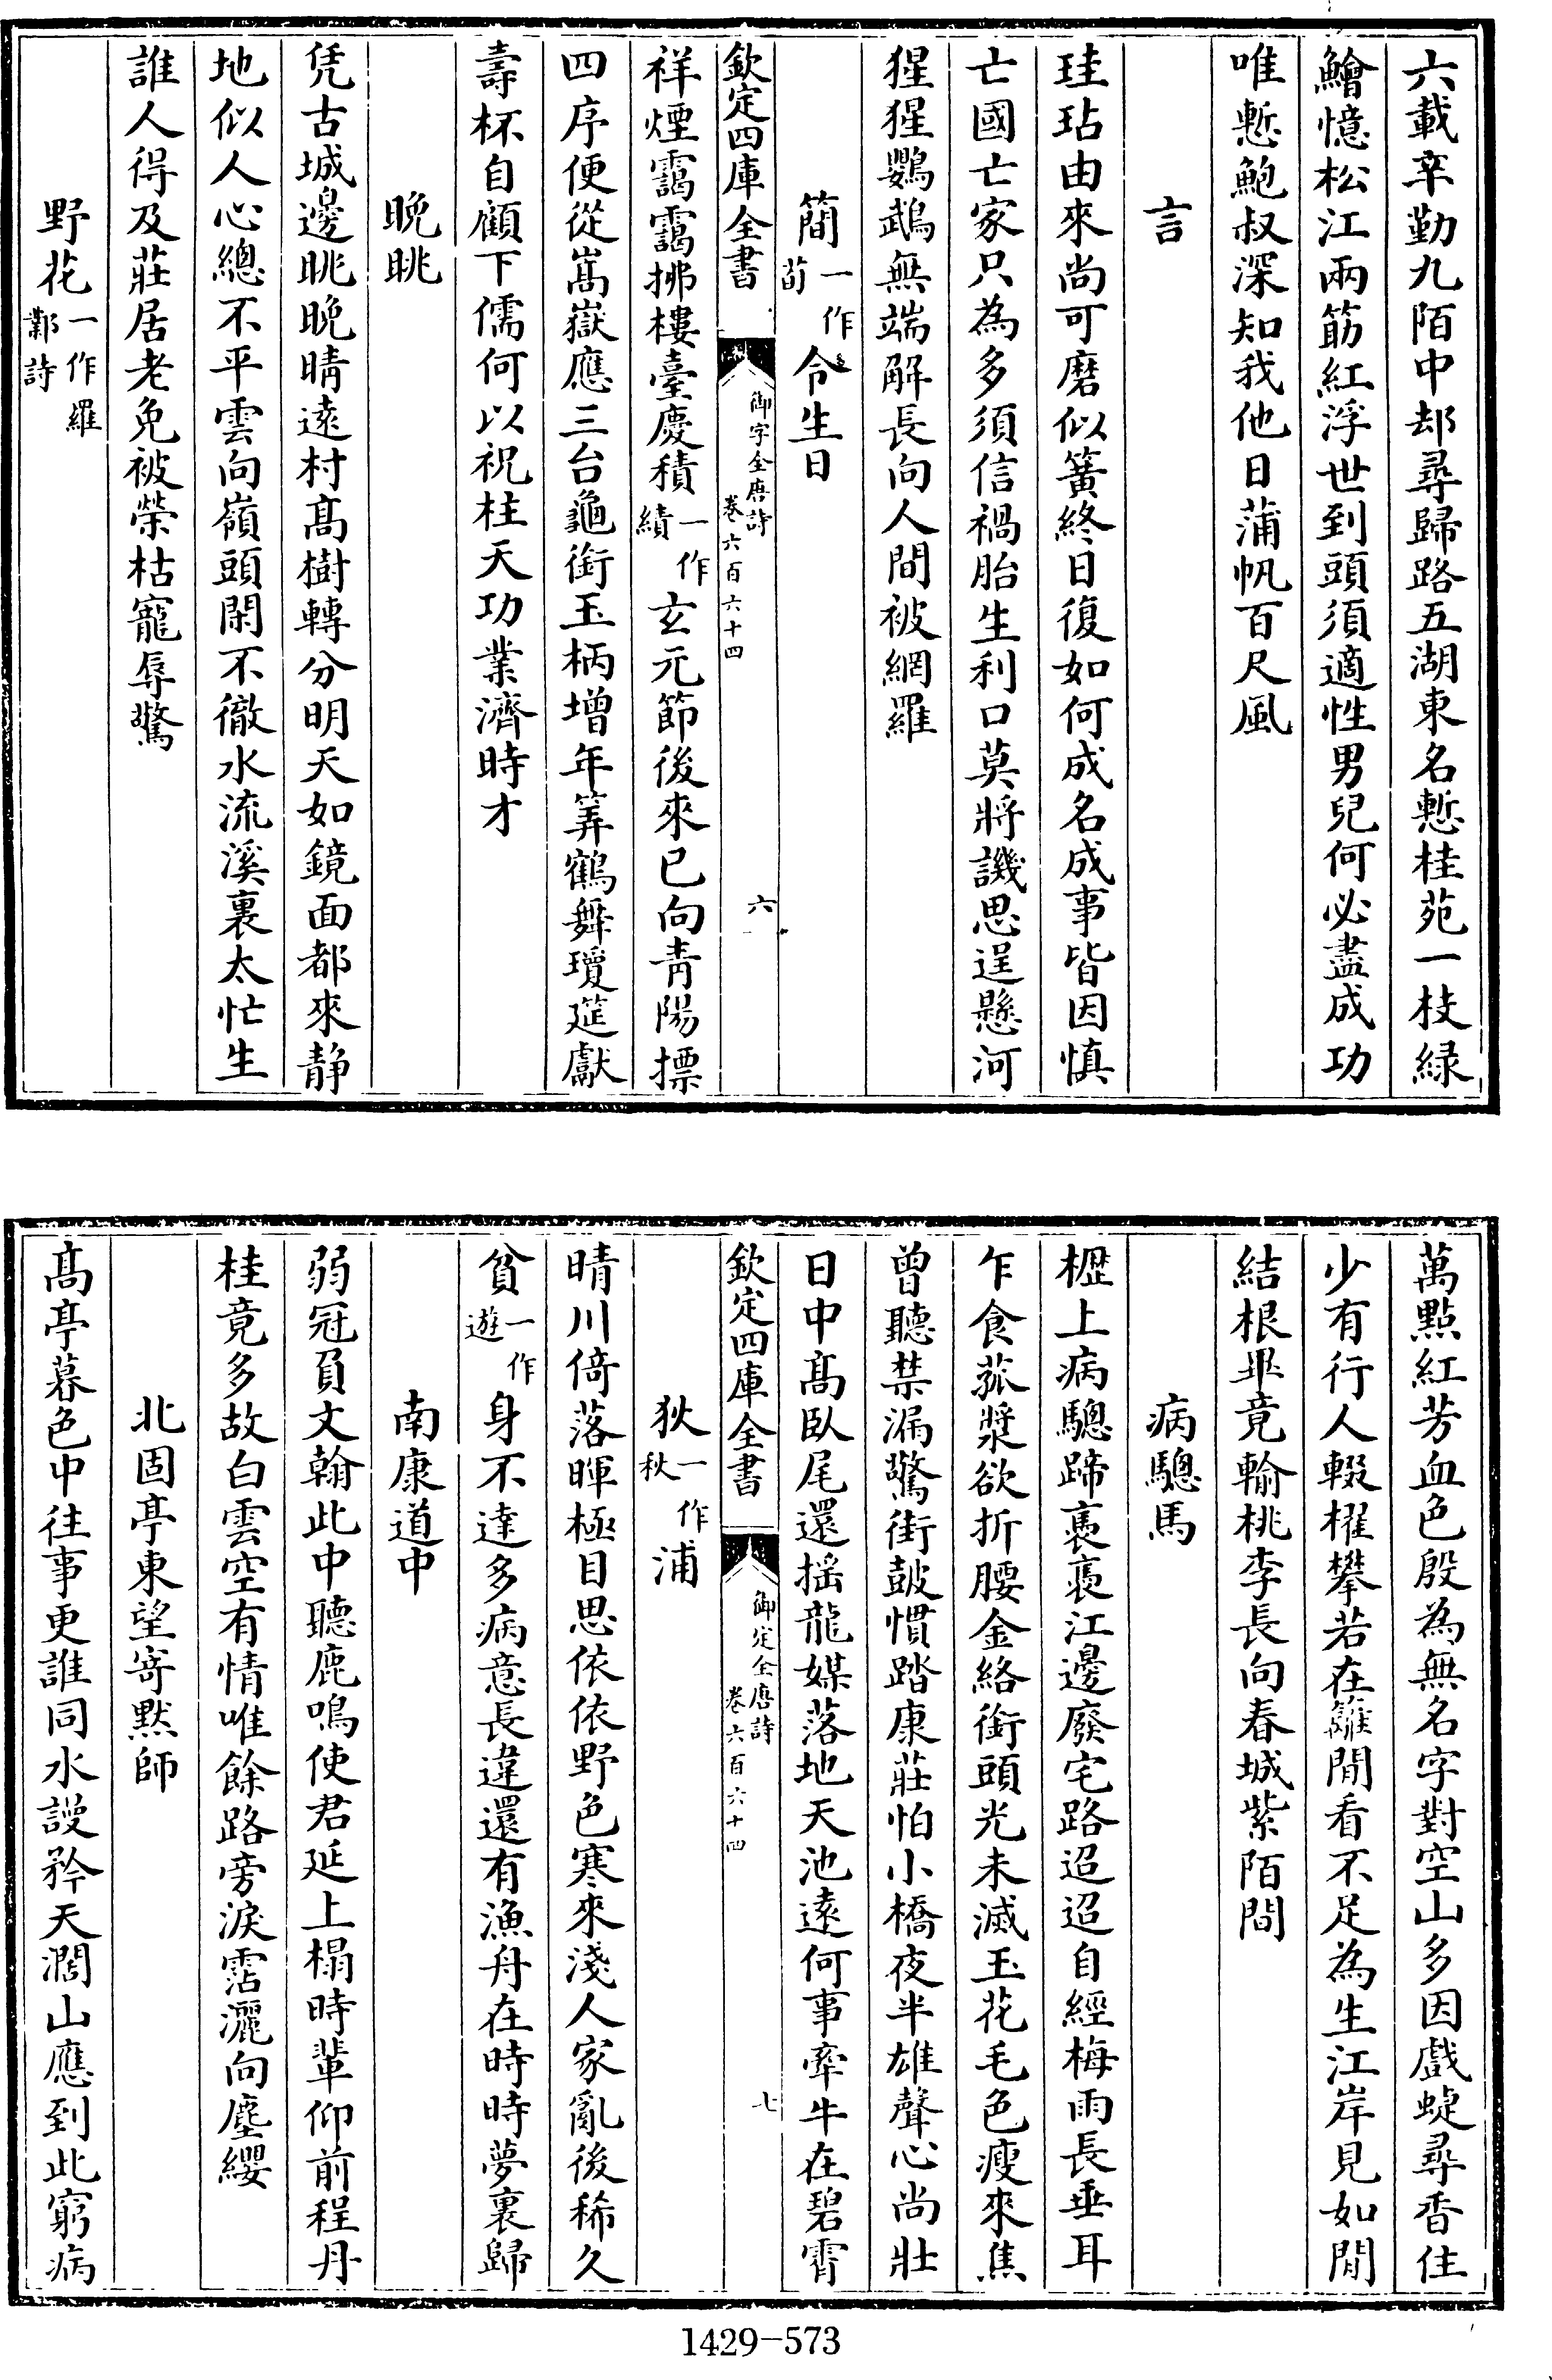 六載辛勤九陌中却尋歸路五湖東名慙桂苑一枝緑
鱠憶松江兩筯紅浮世到頭須適性男兒何必盡成功
唯慙鮑叔深知我他日蒲帆百尺風
言
珪玷由來尚可磨似簧終日復如何成名成事皆因慎
亡國亡家只為多須信禍胎生利口莫將譏思逞懸河
猩猩鸚鵡無端解長向人間被網羅
簡一作茍令生日
欽定四庫全書
御字全唐詩
卷六百六十四
六
祥煙靄靄拂樓臺慶積一作績玄元節後來已向青陽摽
四序便從嵩嶽應三台龜銜玉柄增年筭鶴舞瓊筵獻
壽杯自顧下儒何以祝柱天功業濟時才
晚眺
凭古城邊眺晚晴遠村髙樹轉分明天如鏡面都來静
地似人心總不平雲向嶺頭閑不徹水流溪裏太忙生
誰人得及莊居老免被榮枯寵辱驚
野花一作羅鄴詩
萬點紅芳血色殷為無名字對空山多因戲蜨尋香住
少有行人輟櫂攀若在籬間看不足為生江岸見如閒
結根畢竟輸桃李長向春城紫陌間
病驄馬
櫪上病驄蹄裛裛江邊廢宅路迢迢自經梅雨長垂耳
乍食菰漿欲折腰金絡銜頭光未滅玉花毛色瘦來焦
曾聽禁漏驚街鼓慣踏康莊怕小橋夜半雄聲心尚壯
日中髙臥尾還揺龍媒落地天池遠何事牽牛在碧霄
欽定四庫全書
御定全唐詩
卷六百六十四
七
狄一作秋浦
晴川倚落暉極目思依依野色寒來淺人家亂後稀久
貧一作遊身不達多病意長違還有漁舟在時時夢裏歸
南康道中
弱冠負文翰此中聽鹿鳴使君延上榻時輩仰前程丹
桂竟多故白雲空有情唯餘路旁淚霑灑向塵纓
北固亭東望寄黙師
髙亭暮色中往事更誰同水謾矜天濶山應到此窮病
1429-573